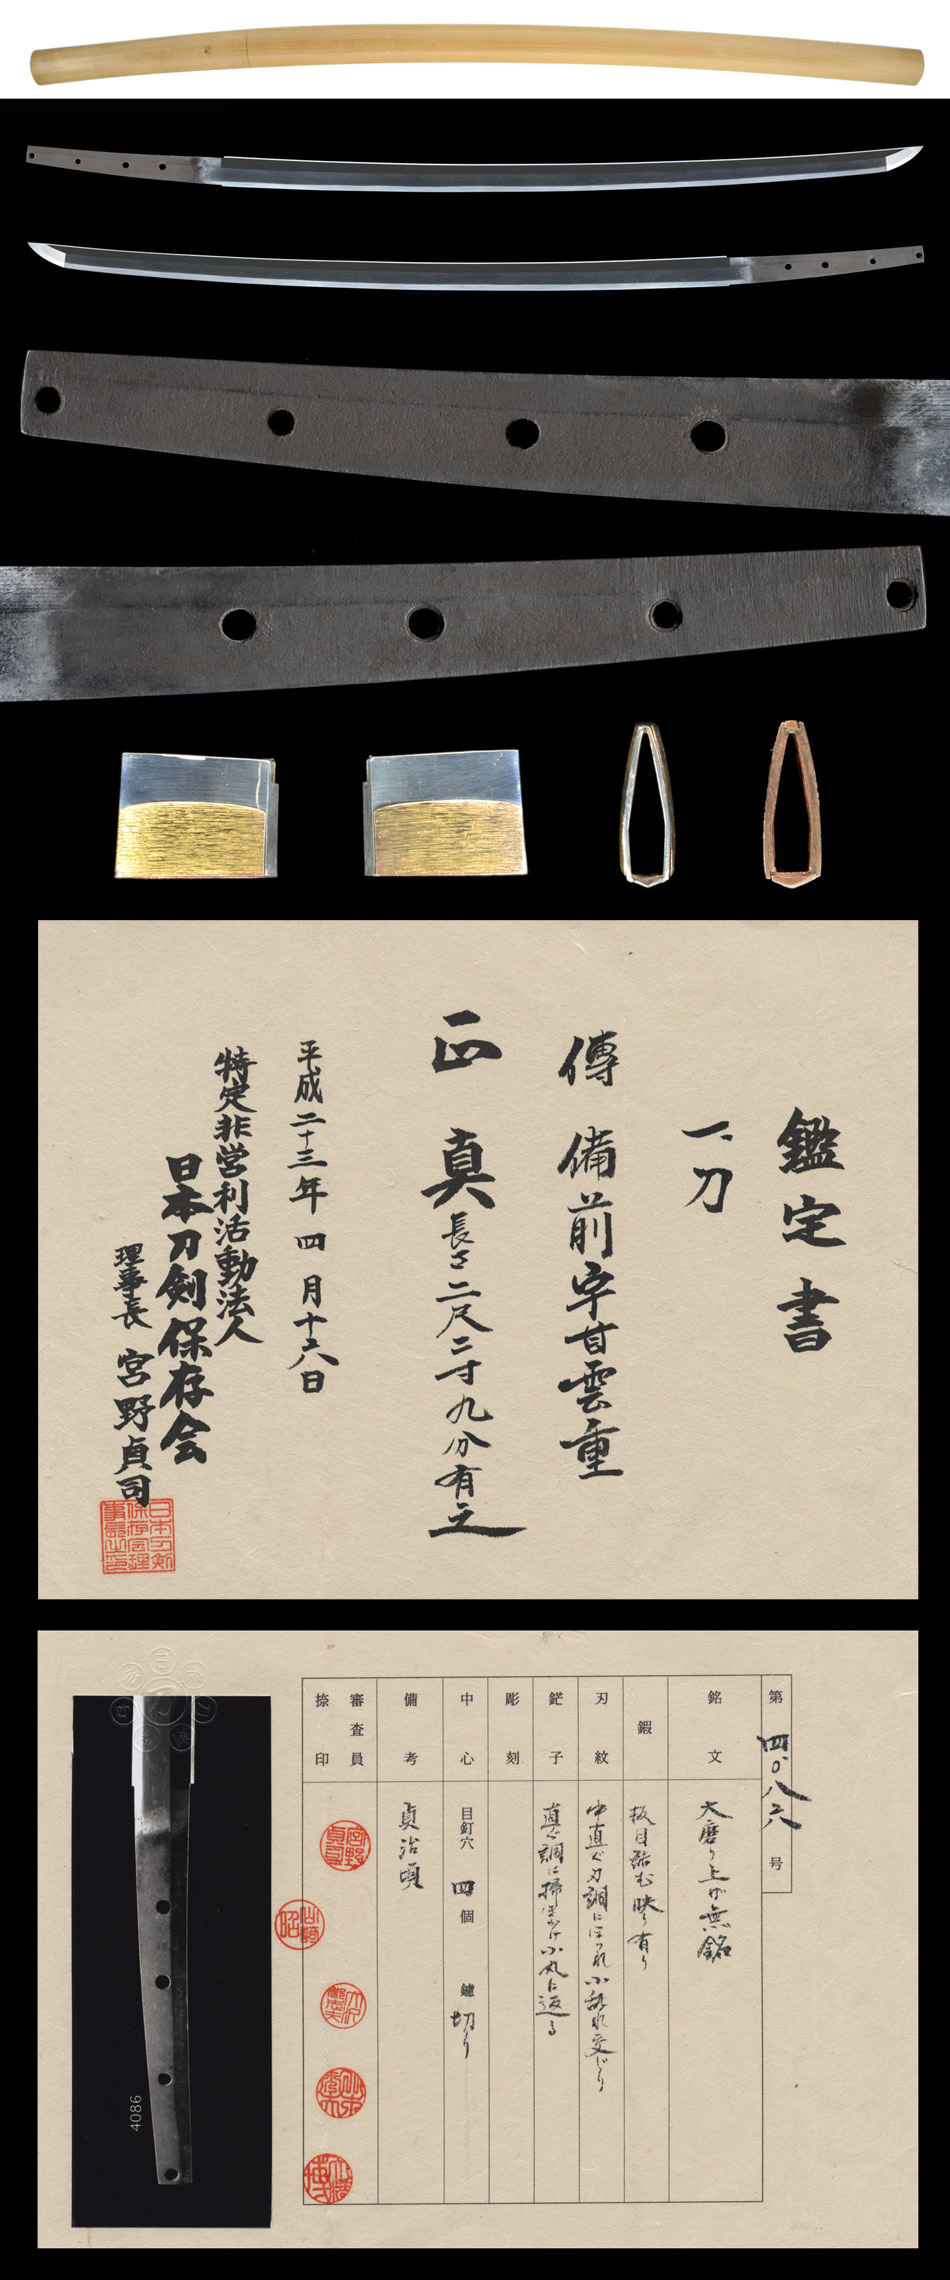 鑑定書
一、刀
傳 備前宇甘雲重
正真 長さ二尺二寸九分有之
平成二十三年四月十六日
特定非営利活動法人
日本刀剣保存会
理事長 宮野貞司
第四〇八六号
銘文 大磨り上げ無銘
鍜 板目詰む映り有り
刃紋 中直ぐ刃調にほつれ小乱れ交じり
鋩子 直ぐ調に掃きかけ小丸に返る
彫刻
中心 目釘穴 四個 鑢 切り
備考 貞治頃
審査員
捺印
4086